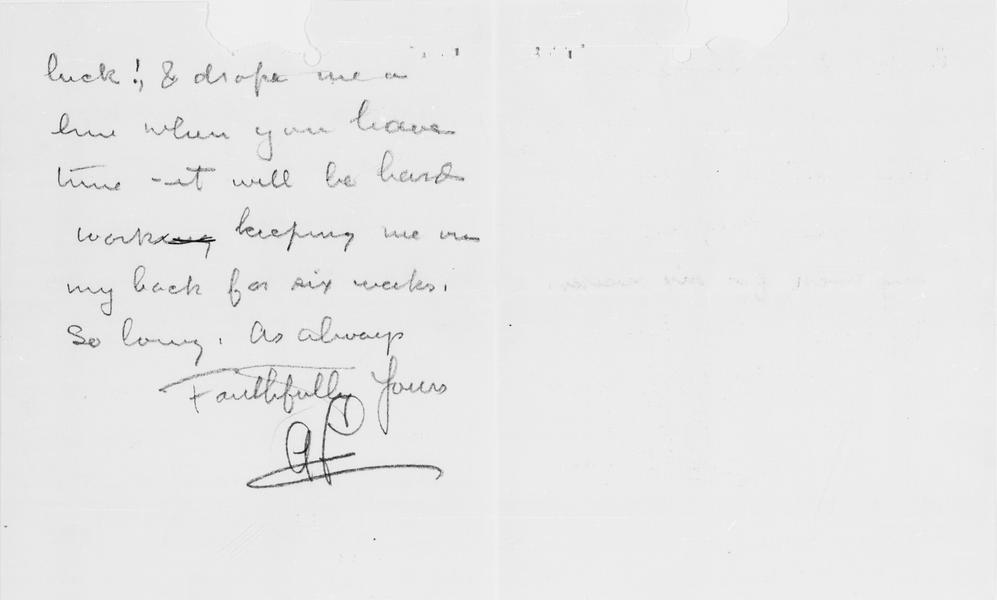 luck!, & drop me a
line when you have
time - it will be hard
work keeping me on
my back for six weeks.
So long. As always
Faithfully Yours